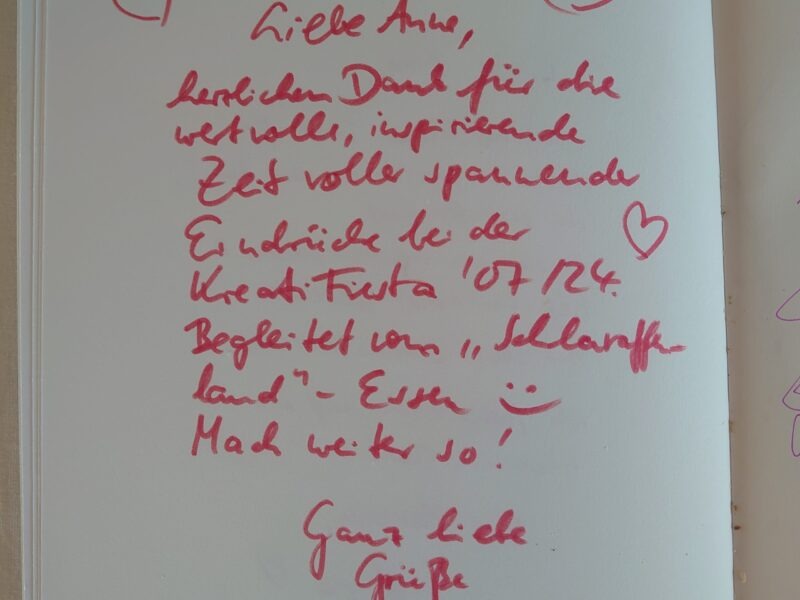 Liebe Anne,
herzlichen Dank für die
wertvolle, inspirierende
Zeit voller spannender
Eindrücke bei der
KreatiFiesta '07/24.
Begleitet vom „Schlaraffen-
land"- Essen
Mach weiter so!
Ganz liebe
Grüße